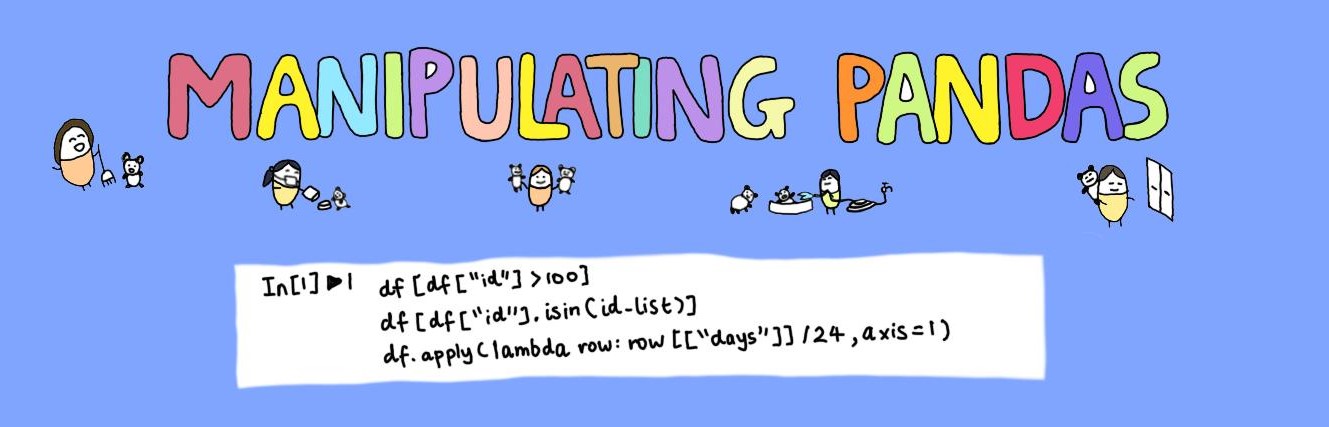 MANIPULATING PANDAS
In[1] ▶ 1 df [df["id"] >100]
df [df["id"].isin(id-list)]
df.apply(lambda row: row [["days"]] /24, axis=1)